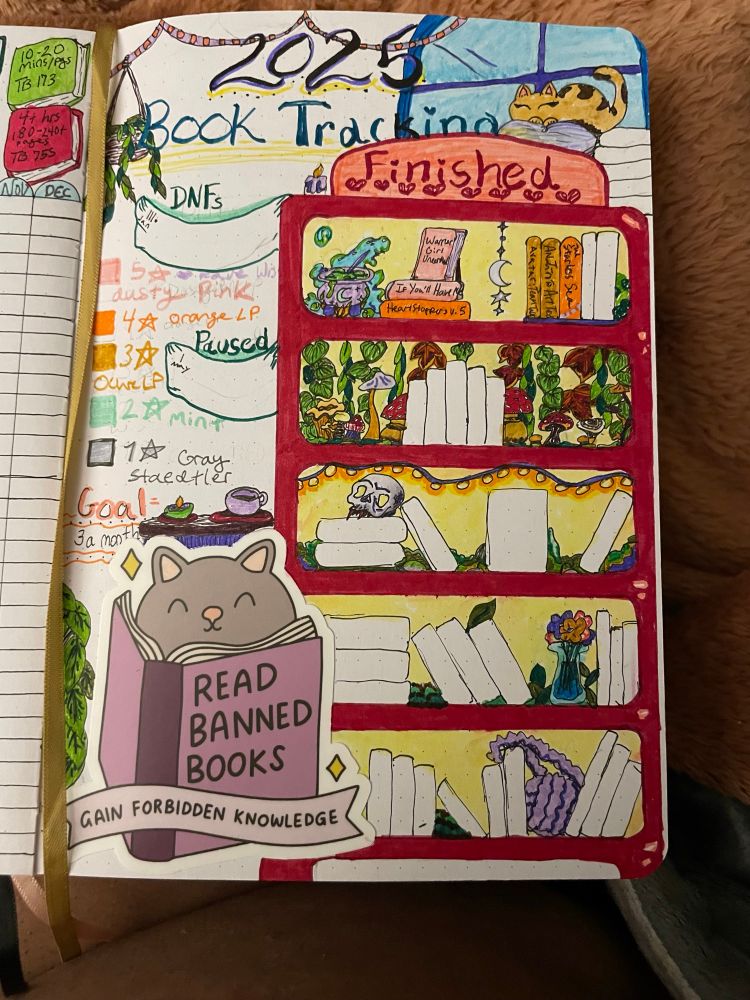 10-20
mins/pgs
TB 173
4+ hrs
180-240+
pages
TB 755
NOV DEC
2025
Book Tracking
Finished
DNFs
5☆
dusty Pink
4☆ orange LP
3☆
Olive LP
2☆ Mint
1☆ Gray
Staedtler
Paused
Goal=
3 a month
Warrior
Girl
If You'll Have Me
HeartStoppers v. 5
READ
BANNED
BOOKS
GAIN FORBIDDEN KNOWLEDGE